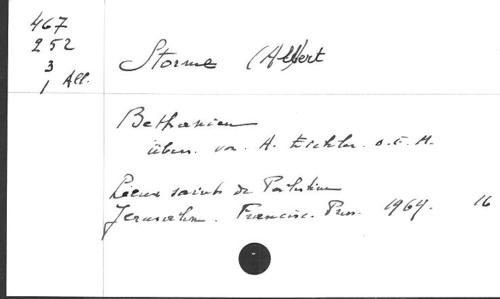 467
252
3
1 All.
Storme (Albert
Bethanien
übers. von. A. Eichler. o.F.M.
Lieux saints de Palestine
Jerusalem. Francisc. Press. 1964. 16